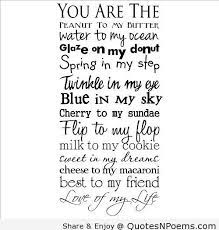 You Are The
Peanut to my Butter
water to my ocean
Glaze on my donut
Spring in my step
Twinkle in my eye
Blue in my sky
Cherry to my sundae
Flip to my flop
milk to my cookie
sweet in my dreams
cheese to my macaroni
best to my friend
Love of my Life
Share & Enjoy @ QuotesNPoems.com